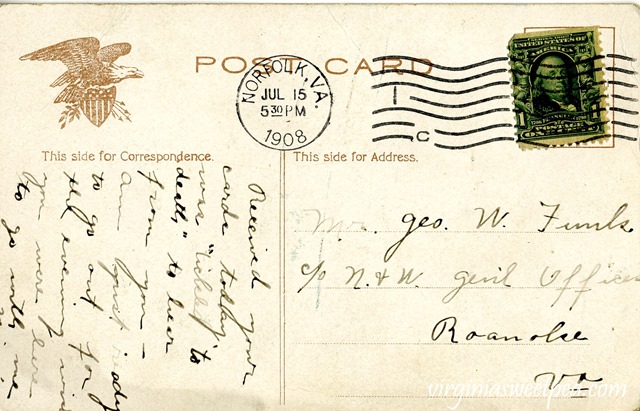 POST CARD
NORFOLK, VA.
JUL 15
5 30 PM
1908
C
UNITED STATES OF
AMERICA
1
ONE
POSTAGE
This side for Correspondence.
This side for Address.
Received your
cards today
was "tickled to
death," to hear
from you —
am just ready
to go out for
the evening wish
you were here
to go with me
Mr. Geo. W. Funk
c/o N. & W. Genl Offices
Roanoke
Va
virginiasweetpea.com